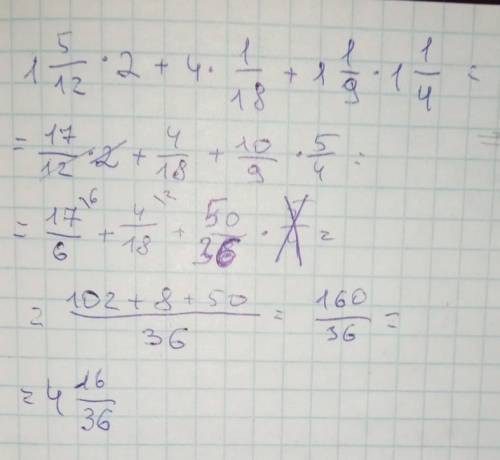 1 5/12 · 2 + 4 · 1/18 + 1 1/9 · 1 1/4 =
= 17/12 · 2 + 4/18 + 10/9 · 5/4 =
= 17/6 \6 + 4/18 \2 + 50/36 · =
= (102 + 8 + 50)/36 = 160/36 =
= 4 16/36